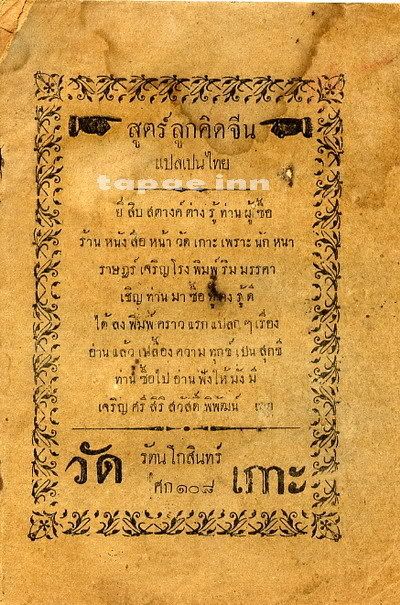 สูตร์ลูกคิดจีน
แปลเปนไทย
tapae inn
ยี่ สิบ สตางค์ ต่าง รู้ ท่าน ผู้ ซื้อ
ร้าน หนัง สือ หน้า วัด เกาะ เพราะ นัก หนา
ราษฎร์ เจริญ โรง พิมพ์ ริม มรรคา
เชิญ ท่าน มา ซื้อ ดู คง รู้ ดี
ได้ ลง พิมพ์ คราว แรก แปลก ๆ เรื่อง
อ่าน แล้ว เปลื้อง ความ ทุกข์ เปน สุกขี
ท่าน ซื้อ ไป อ่าน ฟัง ให้ มั่ง มี
เจริญ ศรี สิริ สวัสดิ์ พิพัฒน์ เทอญ
วัด รัตนโกสินทร์ เกาะ
ศก ๑๐๘